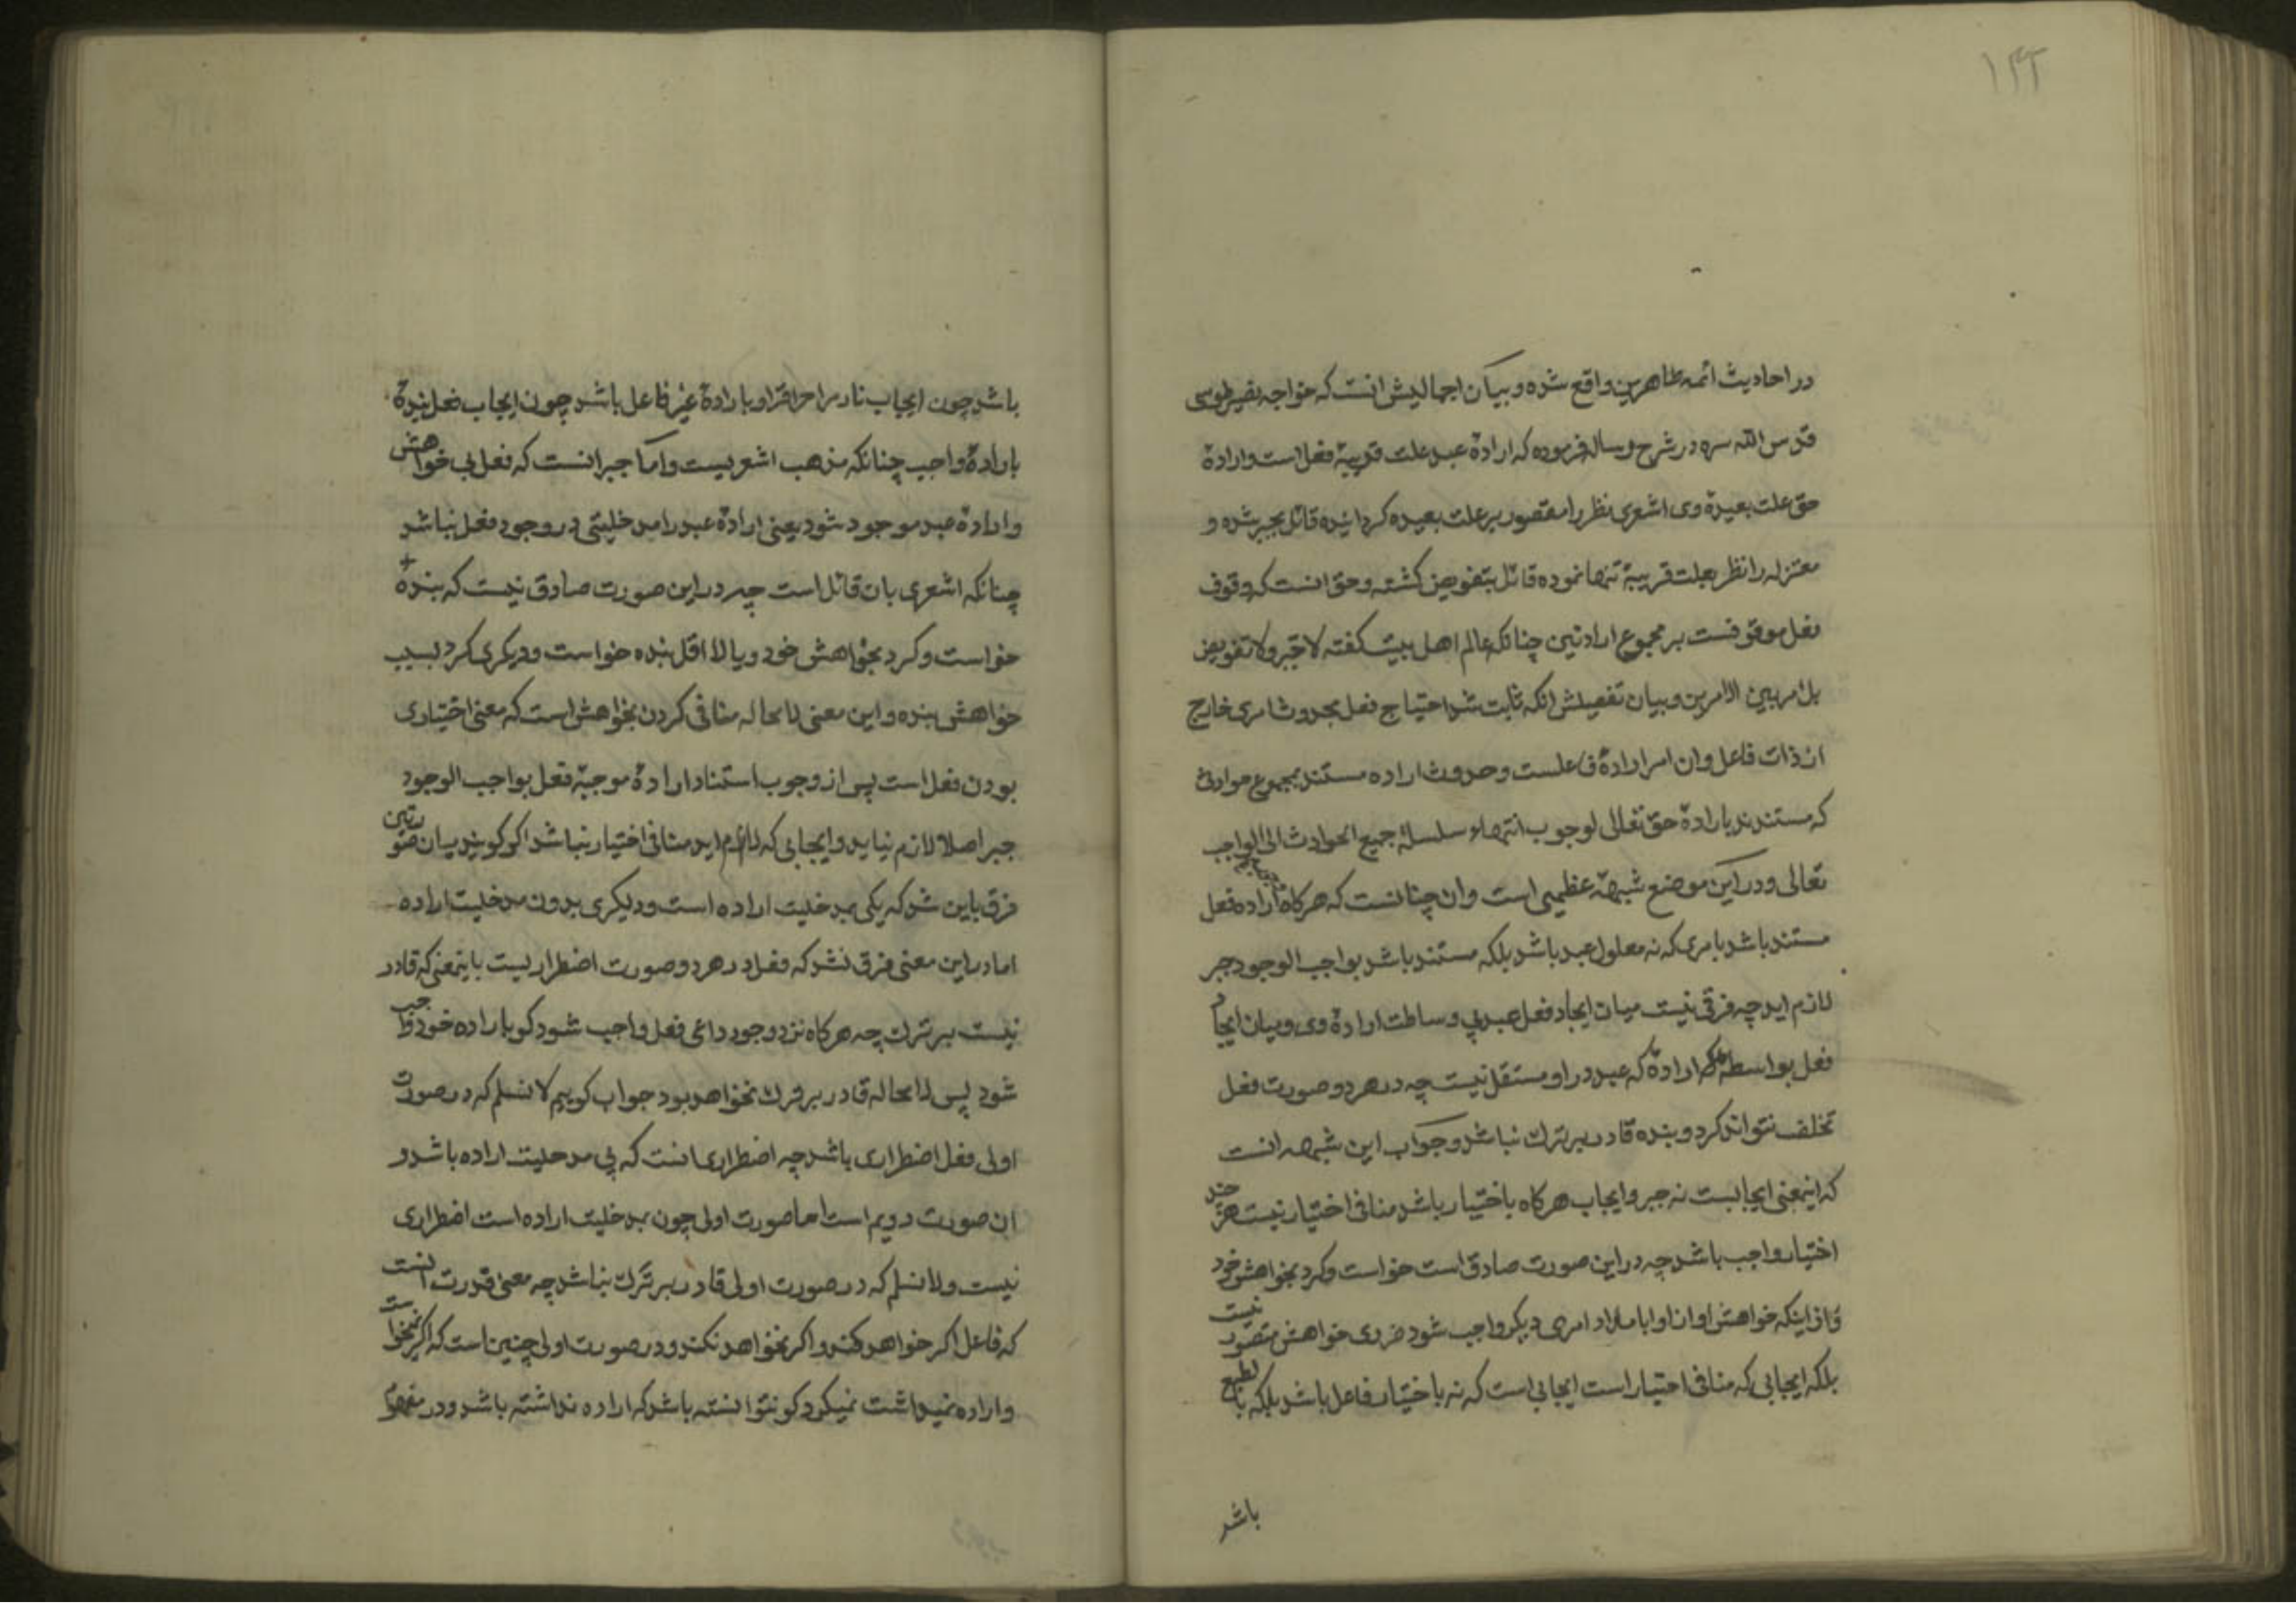 ۱۴۲
در احادیث ائمه طاهرین واقع شده و بیان اجمالیش انست که خواجه نصیر طوسی
قدس الله سره در شرح رساله فرموده که ارادهٔ عبد علت قریبهٔ فعل است و ارادهٔ
حق علت بعیدهٔ وی اشعری نظر را مقصور بر علت بعیده کردانیده قائل بجبر شده و
معتزله را نظر بعلت قریبهٔ تنها نموده قائل بتفویض کشته و حق انست که وقوف
فعل موقوفست بر مجموع ارادتین چنانکه عالم اهل بیت کفته لا جبر ولا تفویض
بل امر بین الامرین و بیان تفصیلش انکه ثابت شد احتیاج فعل بحدوث امری خارج
از ذات فاعل و ان امر ارادهٔ فاعلست و حدوث اراده مستند بمجموع حوادث
که مستندند بارادهٔ حق تعالی لوجوب انتهاء سلسلهٔ جمیع الحوادث الی الواجب
تعالی و در این موضع شبههٔ عظیمی است و ان چنانست که هرکاه اراده فعل
مستند باشد بامری که نه معلول عبد باشد بلکه مستند باشد بواجب الوجود جبر
لازم اید چه فرقی نیست میان ایجاد فعل عبد بی وساطت ارادهٔ وی و میان ایجاد
فعل بواسطه ارادهٔ که عبد در او مستقل نیست چه در هر دو صورت فعل
تخلف نتواند کرد و بنده قادر بر ترک نباشد و جواب این شبهه انست
که اینمعنی ایجابست نه جبر و ایجاب هرکاه باختیار باشد منافی اختیار نیست هرچند
اختیار واجب باشد چه در این صورت صادق است خواست و کرد بخواهش خود
امری دیکر واجب شود ضروی خواهش متصور نیست
بلکه ایجابی که منافی اختیار است ایجابی است که نه باختیار فاعل باشد بلکه بالطبع
باشد
باشد چون ایجاب نار مر احراق را و یا ارادهٔ غیر فاعل باشد چون ایجاب فعل بندهٔ
بارادهٔ واجب چنانکه مذهب اشعریست و اما جبر انست که فعل بی خواهش
و ارادهٔ عبد موجود شود یعنی ارادهٔ عبد را مدخلیتی در وجود فعل نباشد
چنانکه اشعری بان قائل است چه در این صورت صادق نیست که بندهٔ
خواست و کرد بخواهش خود و یا لا اقل بنده خواست و دیکری کرد بسبب
خواهش بنده و این معنی لا محاله منافی کردن بخواهش است که معنی اختیاری
بودن فعل است پس از وجوب استناد ارادهٔ موجبهٔ فعل بواجب الوجود
جبر اصلا لازم نیاید و ایجابی که لازم اید منافی اختیار نباشد اکر کویند میان صورتین
فرق باین شد که یکی بمدخلیت اراده است و دیکری بدون مدخلیت اراده
اما در این معنی فرق نشد که فعل در هر دو صورت اضطراریست باینمعنی که قادر
نیست بر ترک چه هرکاه نزد وجود داعی فعل واجب شود کو باراده خود واجب
شود پس لا محاله قادر بر ترک نخواهد بود جواب کوییم لا نسلم که در صورت
اولی فعل اضطراری باشد چه اضطراری انست که بی مدخلیت اراده باشد و
ان صورت دویم است اما صورت اولی چون بمدخلیت اراده است اضطراری
نیست ولا نسلم که در صورت اولی قادر بر ترک نباشد چه معنی قدرت انست
که فاعل اکر خواهد کند و اکر نخواهد نکند و در صورت اولی چنین است که اکر نمیخواست
و اراده نمیداشت نمیکرد کو نتوانسته باشد که اراده نداشته باشد و در مفهوم